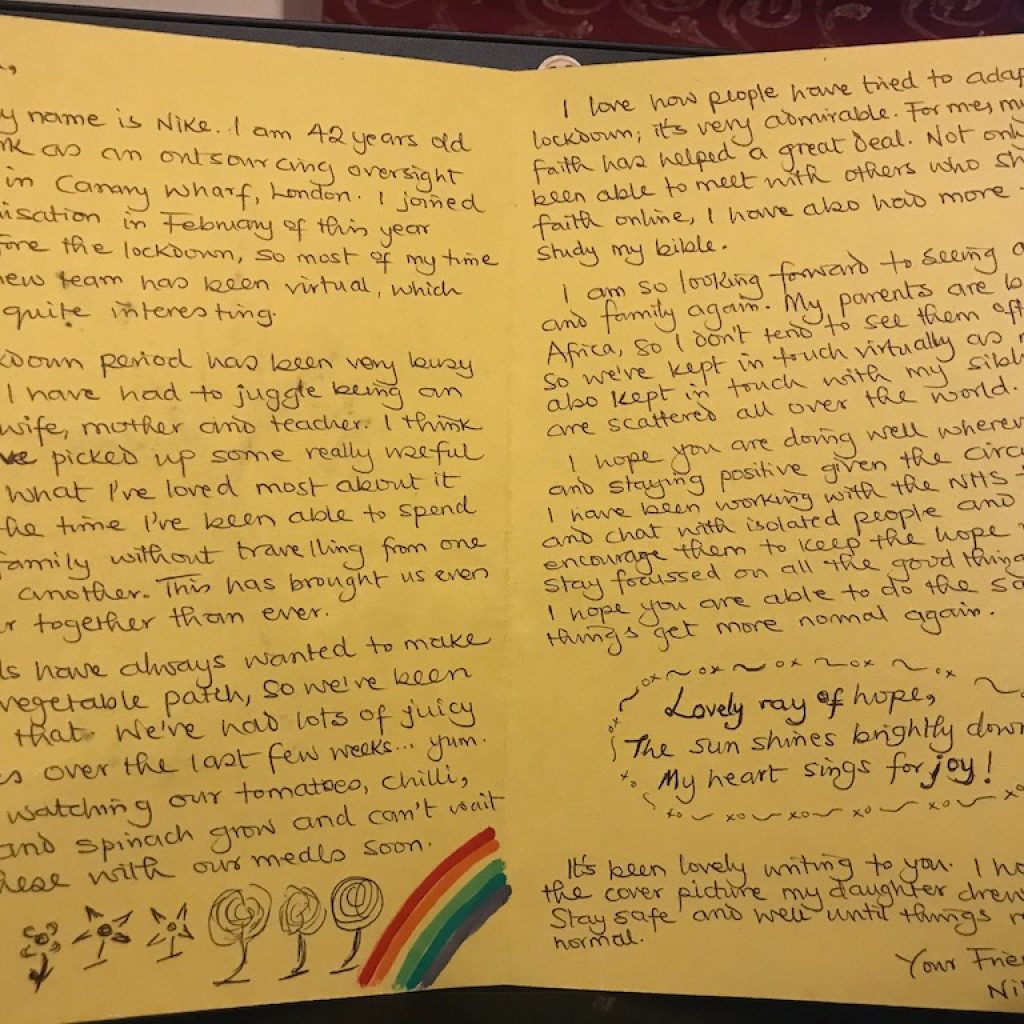 y name is Nike. I am 42 years old
nk as an outsourcing oversight
in Canary Wharf, London. I joined
nisation in February of this year
fore the lockdown, so most of my time
new team has been virtual, which
quite interesting.
kdown period has been very busy
I have had to juggle being an
wife, mother and teacher. I think
ve picked up some really useful
what I've loved most about it
the time I've been able to spend
family without travelling from one
another. This has brought us even
r together than ever.
ls have always wanted to make
vegetable patch, so we've been
that. We've had lots of juicy
es over the last few weeks... yum.
watching our tomatoes, chilli,
and spinach grow and can't wait
hese with our meals soon.
I love how people have tried to adap
lockdown; it's very admirable. For me, my
faith has helped a great deal. Not only
been able to meet with others who sh
faith online, I have also had more
study my bible.
I am so looking forward to seeing
and family again. My parents are b
Africa, so I don't tend to see them oft
so we've kept in touch virtually as
also kept in touch with my sibl
are scattered all over the world.
I hope you are doing well wherev
and staying positive given the circu
I have been working with the NHS t
and chat with isolated people and
encourage them to keep the hope
stay focussed on all the good thing
I hope you are able to do the sa
things get more normal again.
Lovely ray of hope,
The sun shines brightly down
My heart sings for joy!
It's been lovely writing to you. I ho
the cover picture my daughter drew
Stay safe and well until things
normal.
Your Frie
Ni